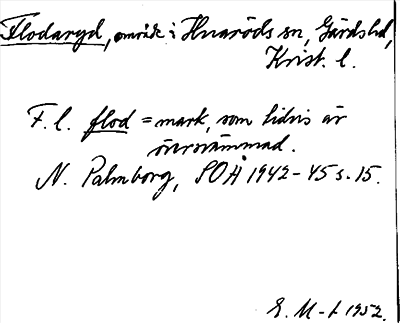 Flodaryd, område i Huaröds sn, Gärds hd,
Krist. l.
F. l. flod = mark, som tidvis är
översvämmad.
N. Palmborg, SOÅ 1942-45 s. 15.
E. M-t 1952.